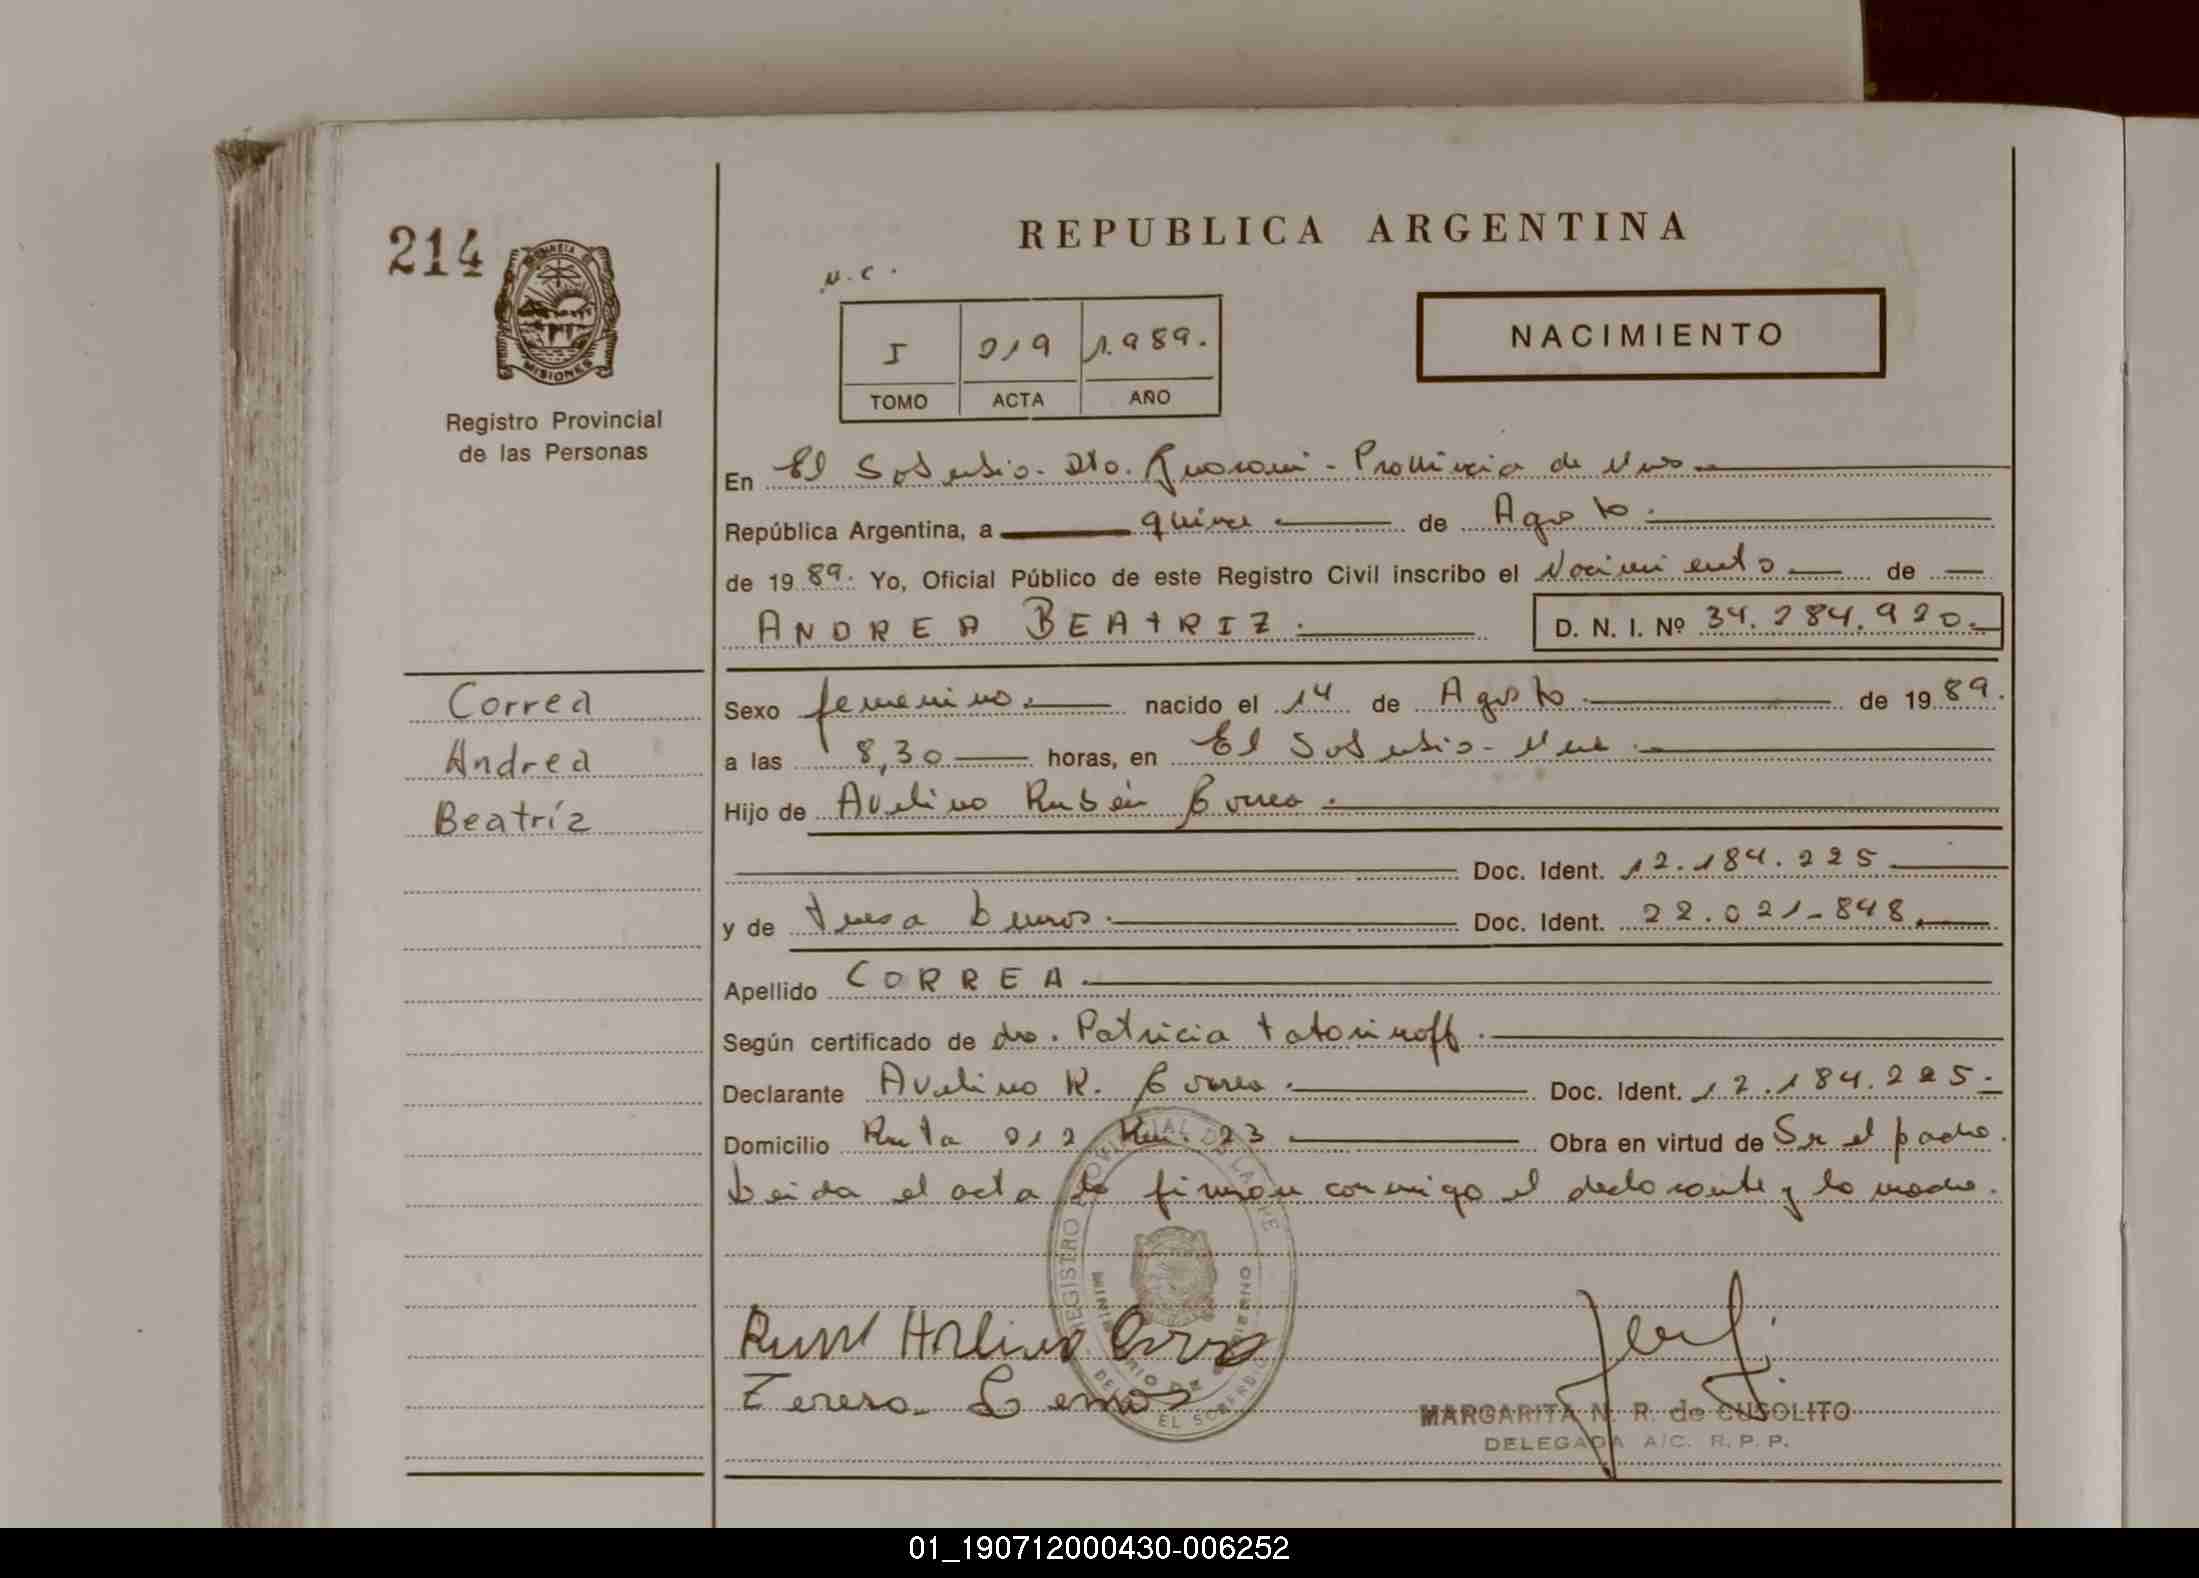 214
REPUBLICA ARGENTINA
PROVINCIA
MISIONES
Registro Provincial
de las Personas
N.C.
I 019 1.989.
TOMO ACTA AÑO
NACIMIENTO
En El Soberbio - Dto. Guaraní - Provincia de Mnes
República Argentina, a quince de Agosto.
de 19 89. Yo, Oficial Público de este Registro Civil inscribo el Nacimiento de
ANDREA BEATRIZ. D. N. I. Nº 34.284.920.
Correa
Andrea
Beatríz
Sexo femenino. nacido el 14 de Agosto de 19 89.
a las 8,30 horas, en El Soberbio -
Hijo de Avelino Rubén Correa.
Doc. Ident. 12.184.225
y de Teresa Lemos. Doc. Ident. 22.021-848.
Apellido CORREA
Según certificado de dra. Patricia Tatorinoff.
Declarante Avelino R. Correa. Doc. Ident. 12.184.225.
Domicilio Ruta 212 Km. 23 Obra en virtud de Ser el padre.
Leida el acta la firman conmigo el declarante y la madre.
REGISTRO PROVINCIAL DE LAS PE
MINISTERIO DE GOBIERNO
EL SOBERBIO
Teresa Lemos
MARGARITA N. R. de CUSOLITO
DELEGADA A/C. R. P. P.
01_190712000430-006252